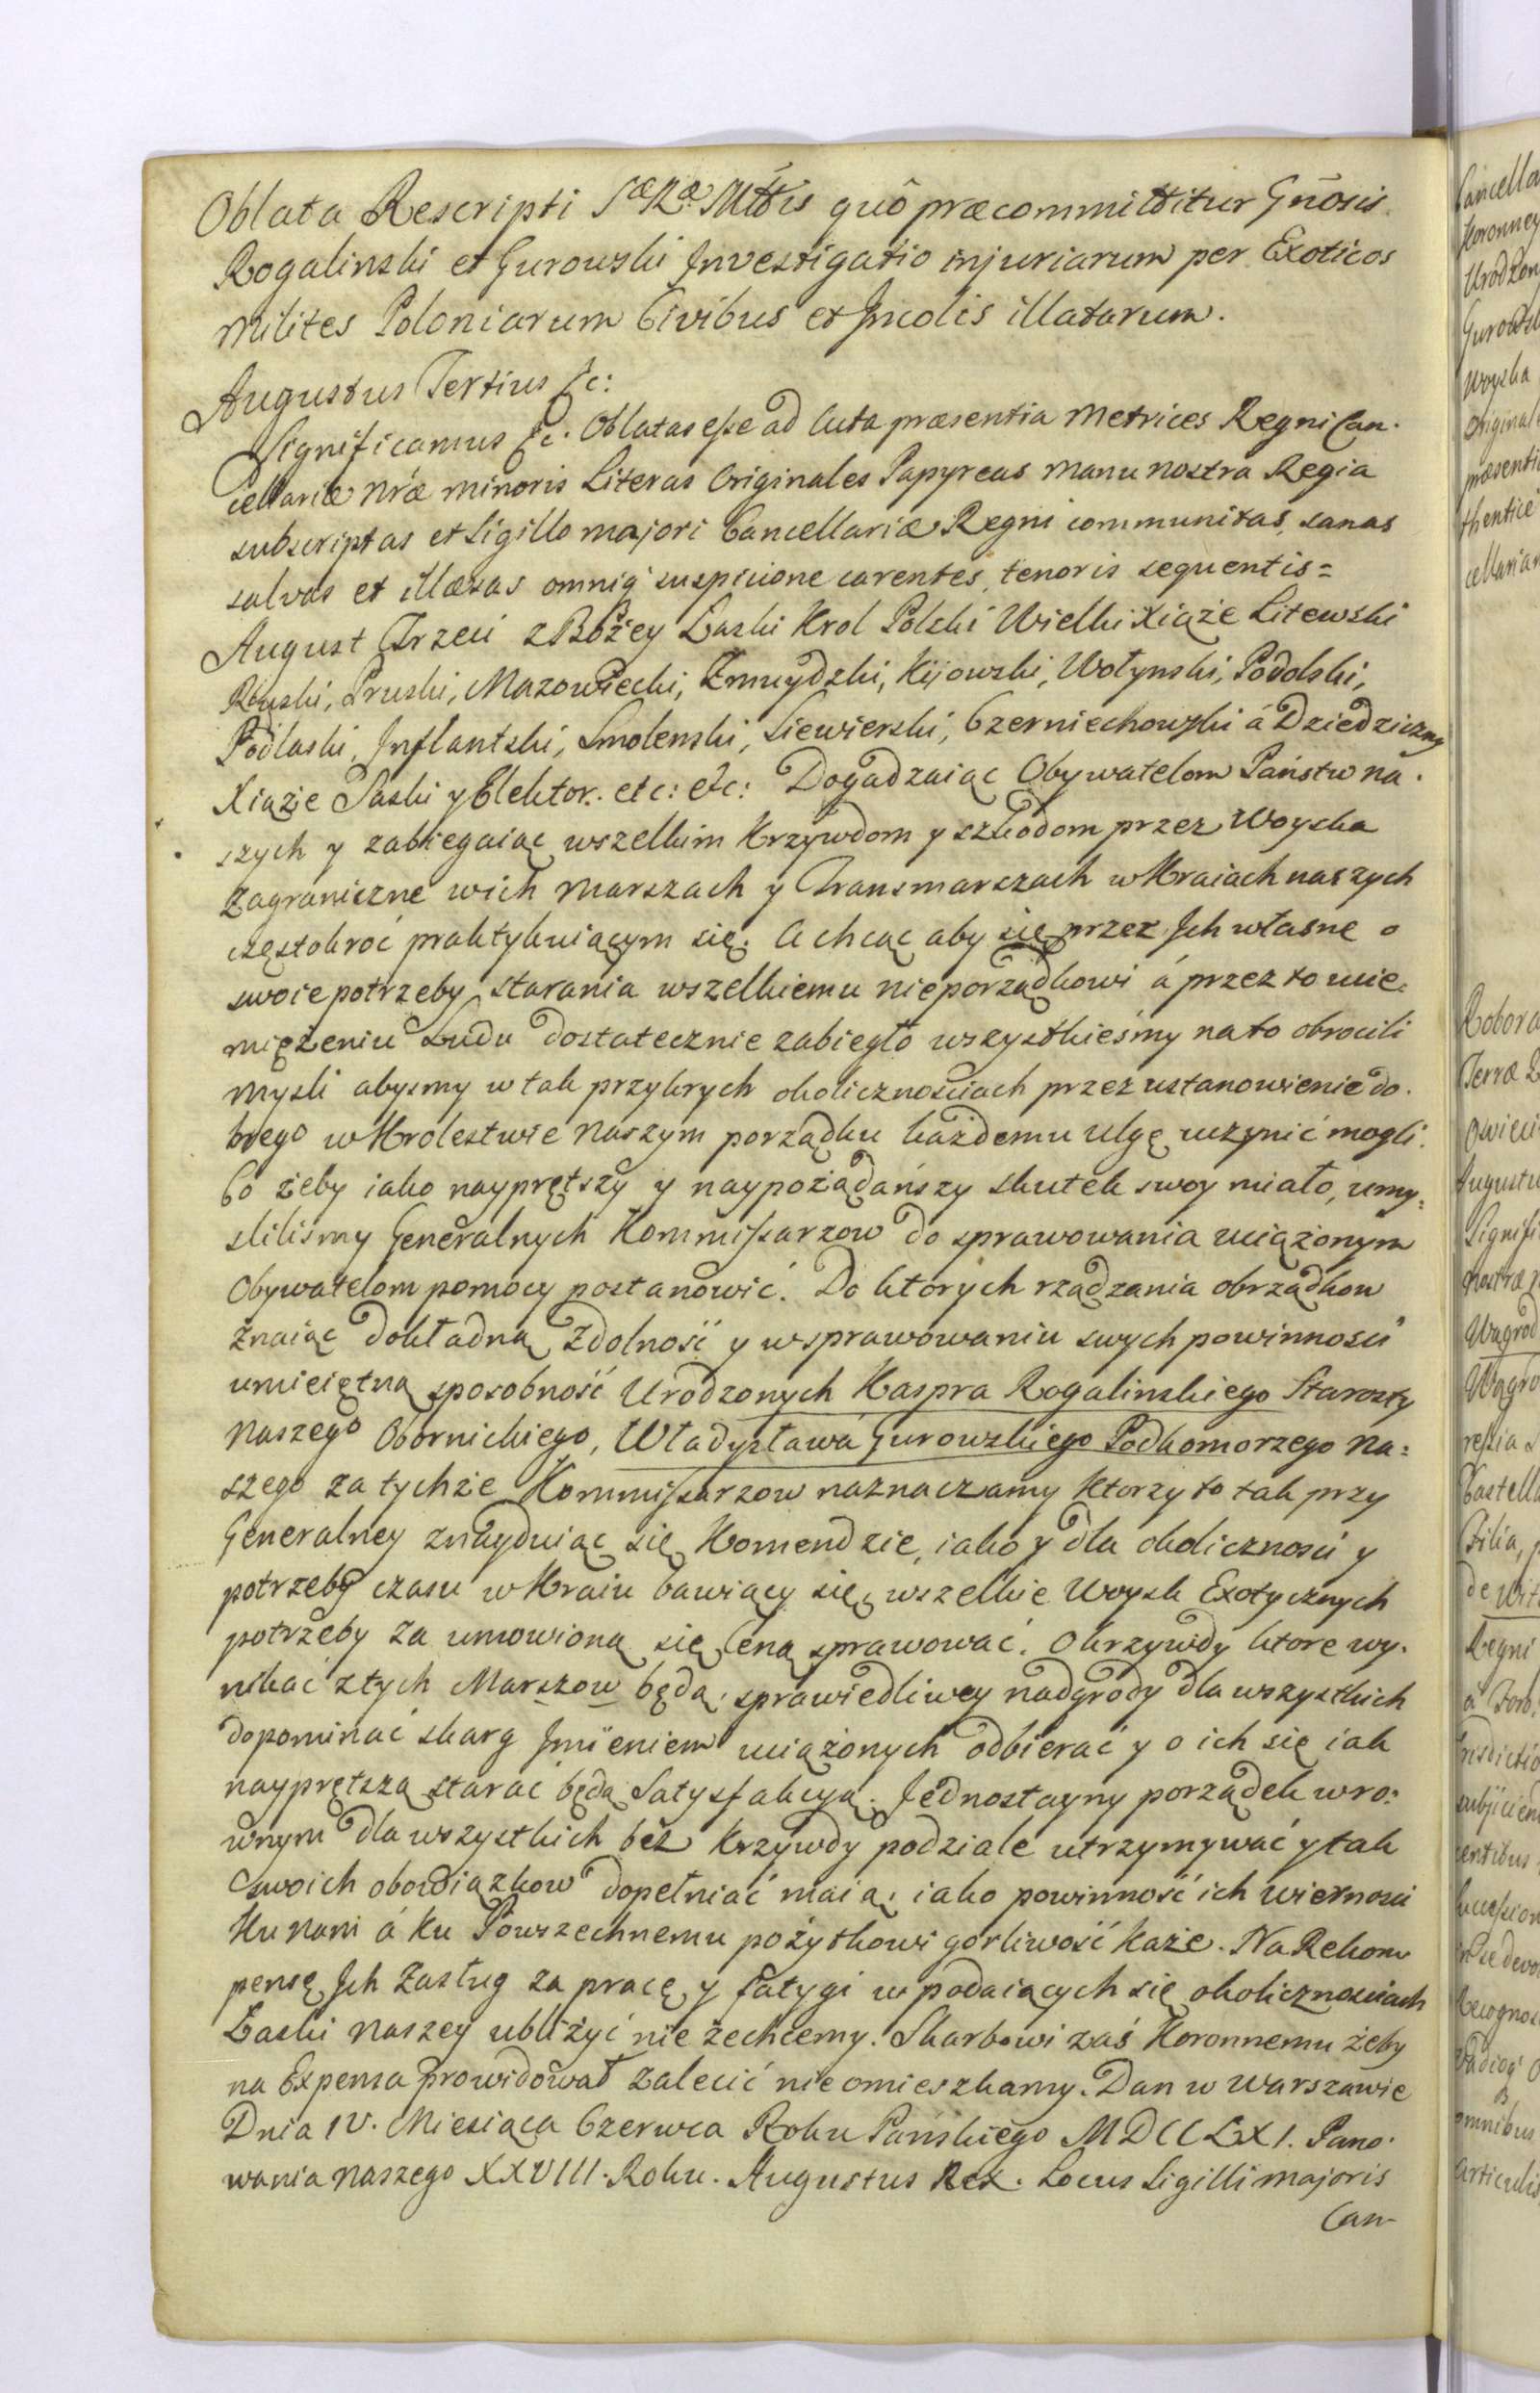 Oblata Rescripti Sæ Ræ Mttis quô præcommittitur Gnosis
Rogalinski et Gurowski Investigatio injuriarum per Exoticos
milites Poloniarum Civibus et Incolis illatarum.
Augustus Tertius &c:
Significamus &c. Oblatas esse ad Acta præsentia Metrices Regni Can-
cellariæ nræ minoris Literas Originales Papyreas manu nostra Regia
subscriptas et Sigillo majori Cancellariæ Regni communitas, sanas
salvas et illæsas omniq suspicione carentes, tenoris sequentis=
August Trzeci z Bożey Łaski Krol Polski Wielki Xiąże Litewski
Ruski, Pruski, Mazowiecki, Zmuydzki, Kijowski, Wołynski, Podolski,
Podlaski, Inflantski, Smolenski, Siewierski, Czerniechowski á Dziedziczny
Xiąże Saski y Elektor. etc: etc: Dogadzaiąc Obywatelom Państw na-
szych y zabiegaiąc wszelkim Krzywdom y szkodom przez Woyska
zagraniczne wich marszach y Transmarszach w Kraiach naszych
częstokroć praktykuiącym się. A chcąc aby się przez Ich własne o
swoie potrzeby starania wszelkiemu nieporządkowi á przez to ucie-
miężeniu Ludu dostatecznie zabiegło wszystkieśmy na to obrocili
mysli abysmy w tak przykrych okolicznościach przez ustanowienie do-
brego w Krolestwie naszym porządku każdemu ulgę uczynić mogli.
Co żeby iako nayprętszy y naypożądańszy skutek swoy miało, umy-
sliliśmy Generalnych Kommissarzow do sprawowania uciążonym
Obywatelom pomocy postanowić. Do ktorych rządzania obrządkow
znaiąc dokładną zdolność y w sprawowaniu swych powinnosci
umieiętną sposobność Urodzonych Kaspra Rogalinskiego Starosty
naszego Obornickiego, Władysława Gurowskiego Podkomorzego na=
szego za tychże Kommissarzow naznaczamy ktorzy to tak przy
Generalney znayduiąc się Komendzie, iako y dla okolicznosci y
potrzeby czasu w Kraiu bawiący się, wszelkie Woysk Exotycznych
potrzeby za umowioną się Ceną sprawować. O krzywdy ktore wy-
nikać z tych Marszow będą, sprawiedliwey nadgrody dla wszystkich
dopominać skarg Imieniem uciążonych odbierać y o ich się iak
nayprętszą starać będą Satysfakcyą. Jednostayny porządek w ro-
wnym dla wszystkich bez krzywdy podziale utrzymywać y tak
swoich obowiązkow dopełniać maią, iako powinność ich wiernosci
Ku nam á ku Powszechnemu pożytkowi gorliwość każe. Na Rekom
pensę Ich zasług za pracę y fatygi w podaiących się okolicznościach
Łaski naszey ubliżyć nie zechcemy. Skarbowi zaś Koronnemu żeby
na Expensa prowidował zalecić nie omieszkamy. Dan w Warszawie
Dnia IV. Miesiąca Czerwca Roku Pańskiego MDCCLXI. Pano-
wania naszego XXVIII. Roku. Augustus Rex. Locus Sigilli majoris
Can-